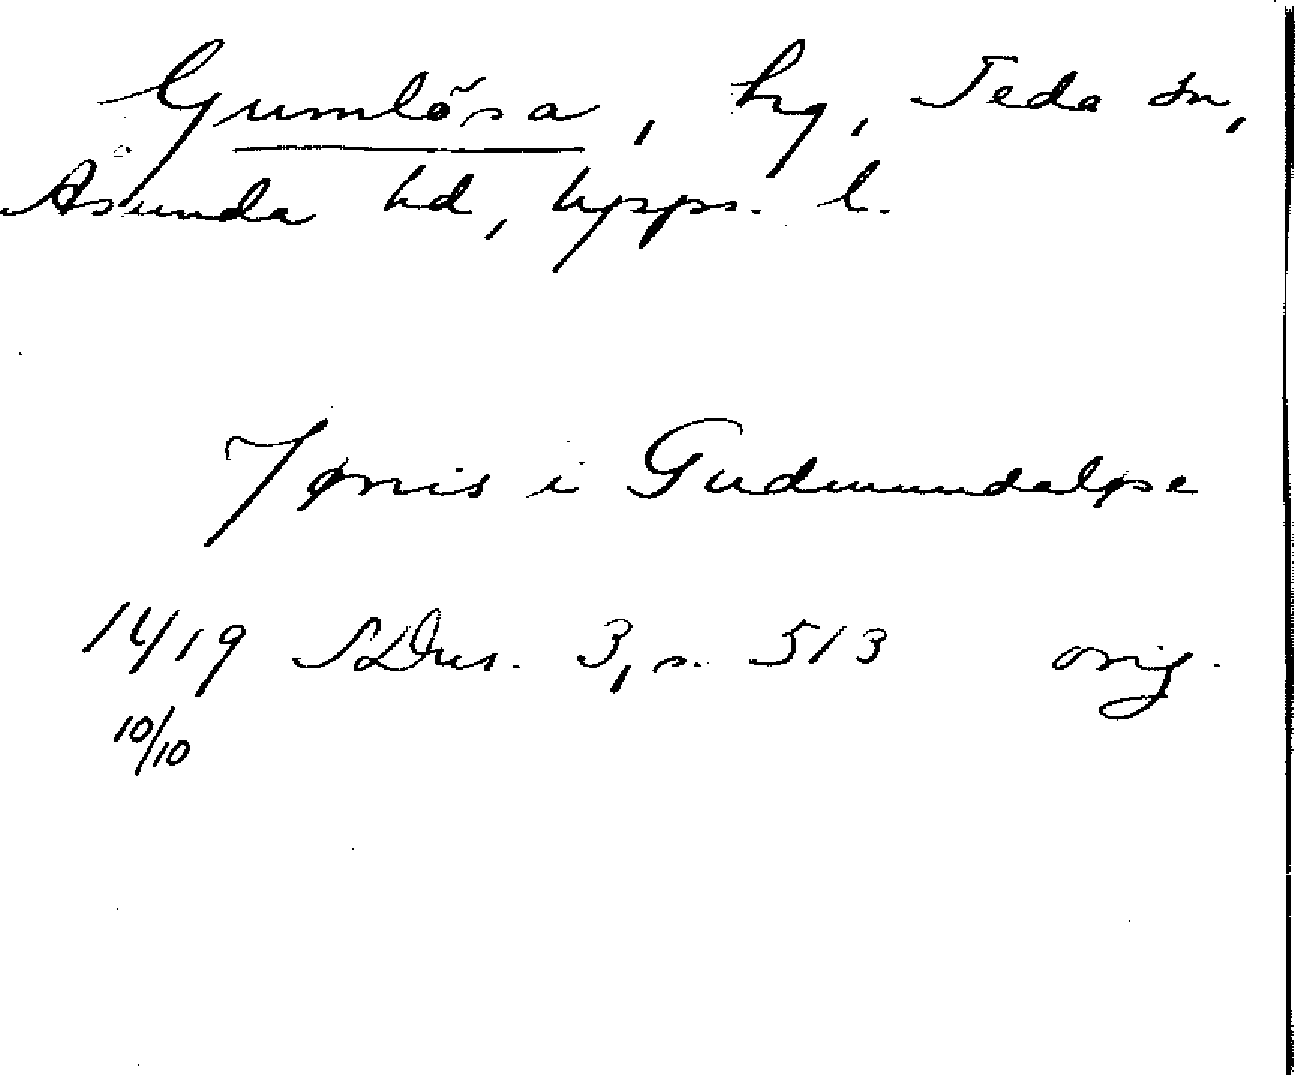 Gumlösa, hg, Teda sn,
Åsunda hd, Upps. l.
Jønis i Gudmundaløse
1419 SDns. 3, s. 513 orig.
10/10